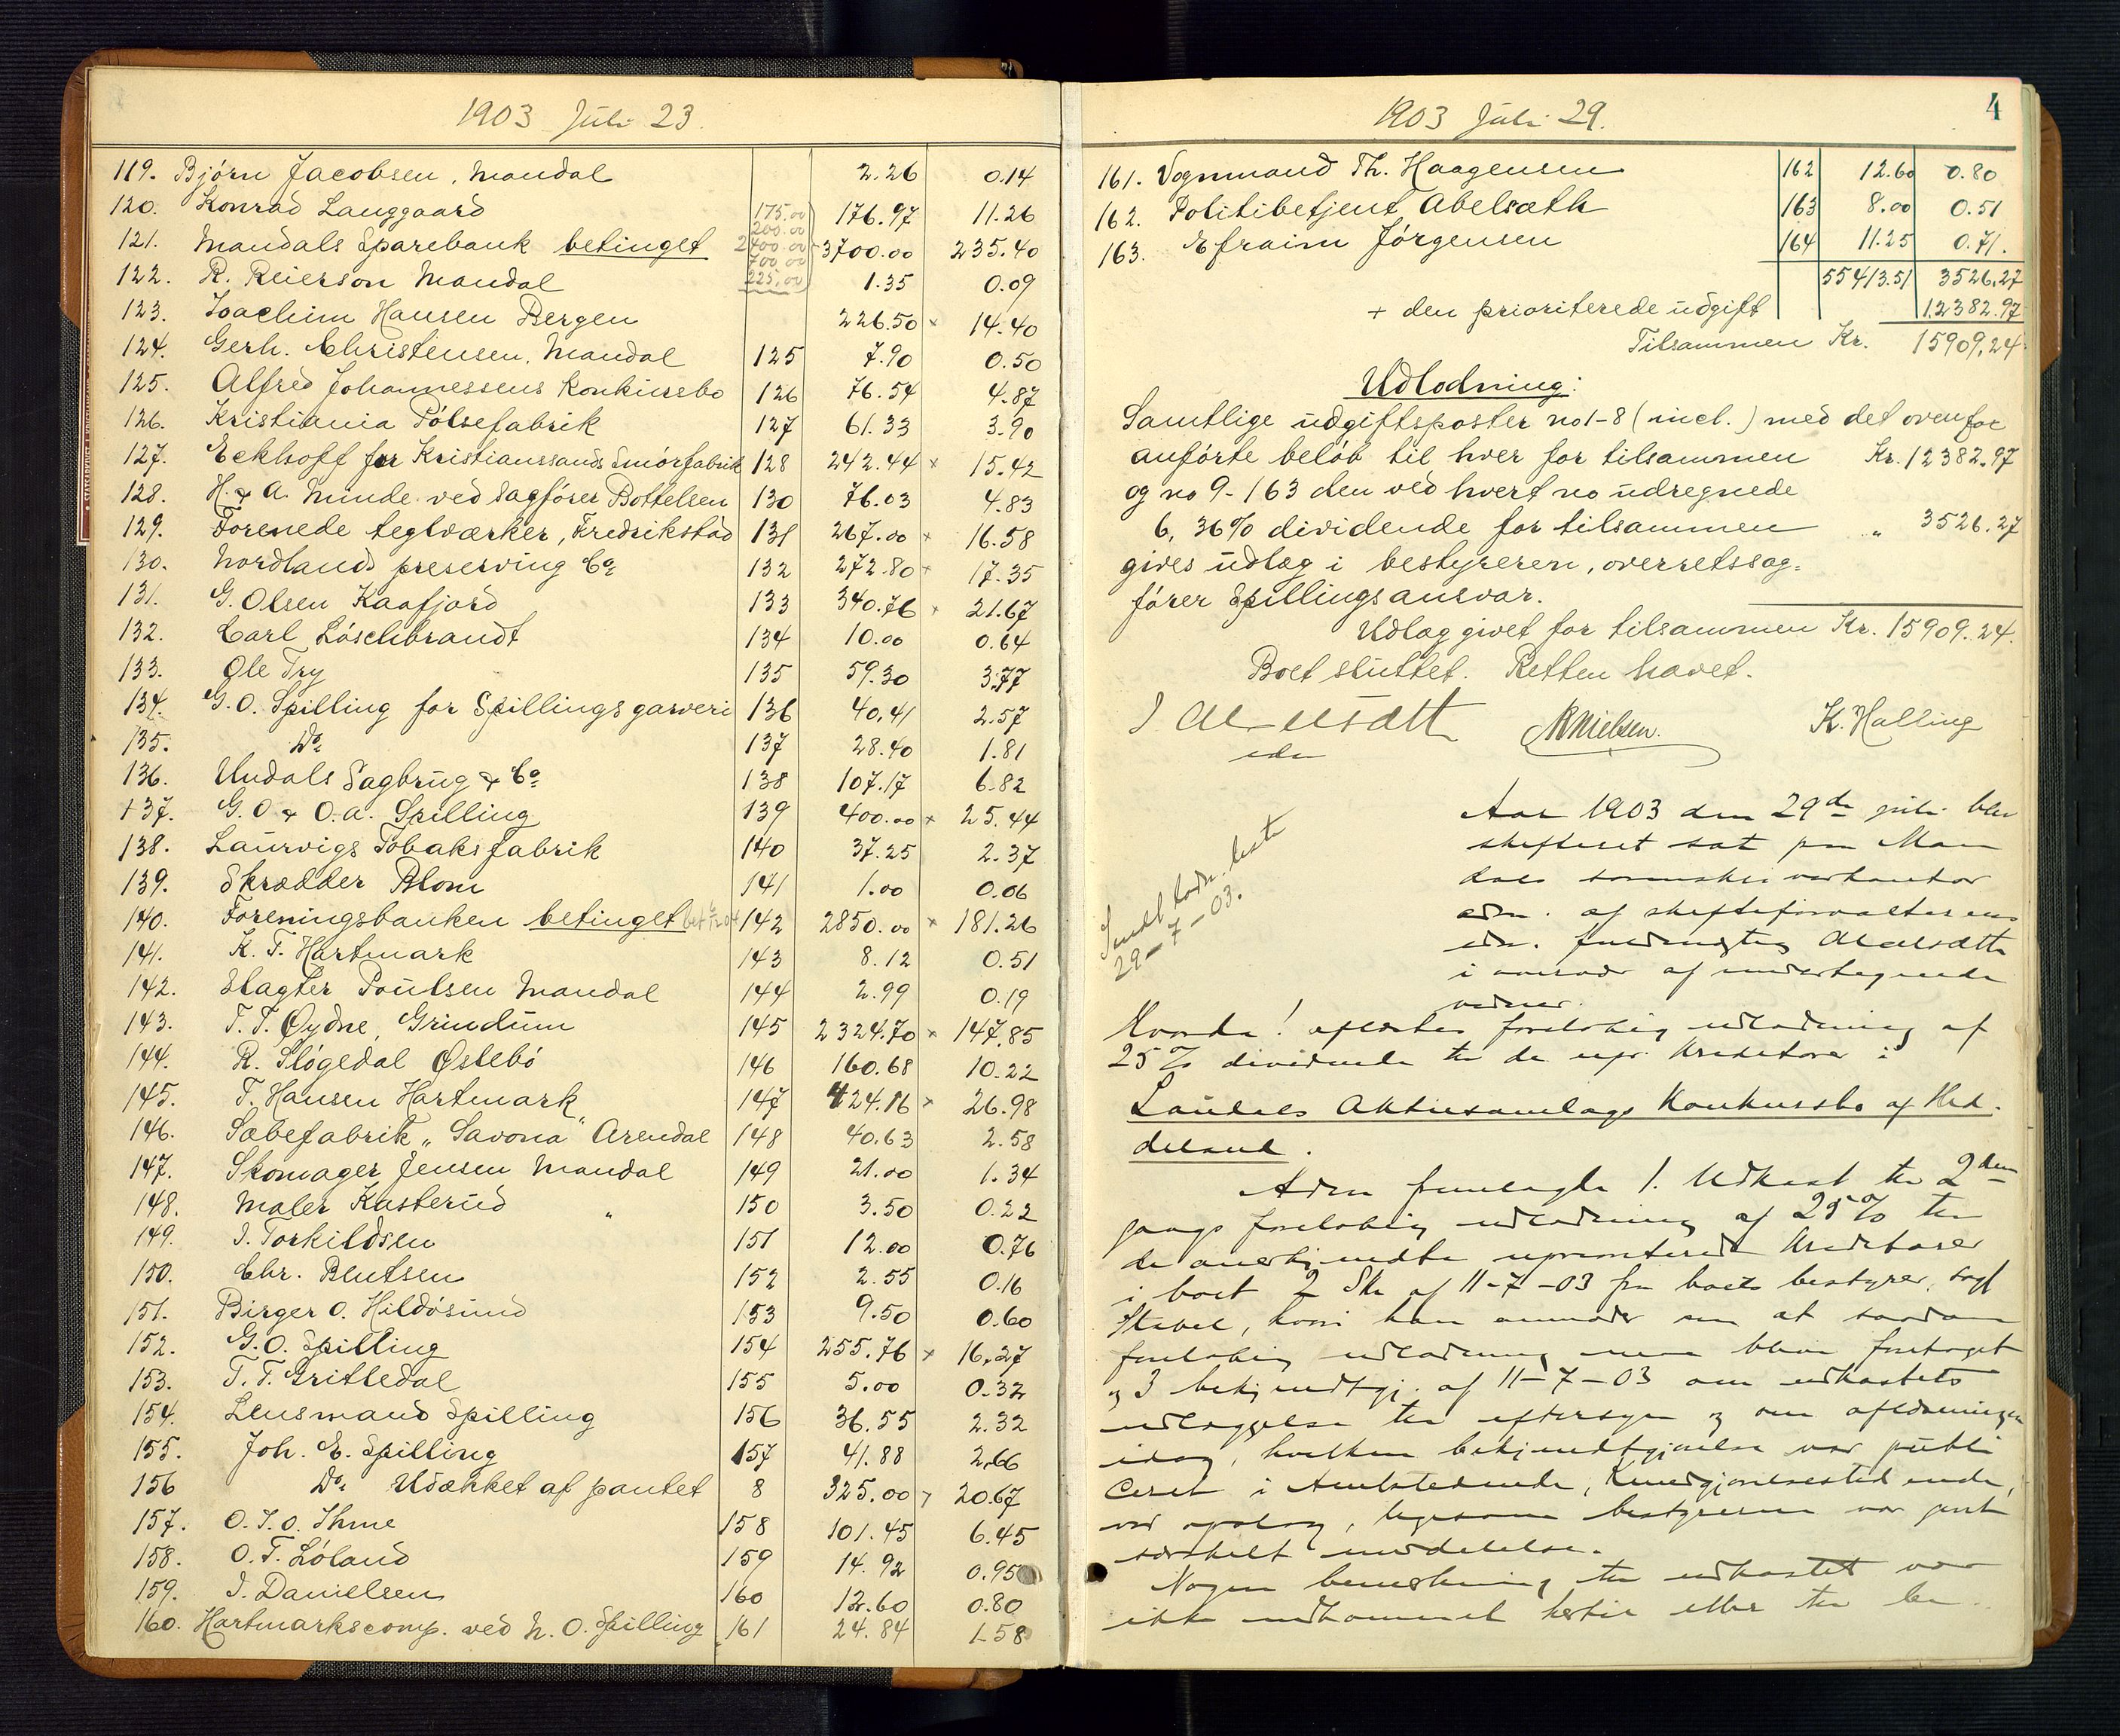 1903 Juli 23.
119. Bjørn Jacobsen, Mandal 2.26 0.14
120. Konrad Langgaard 176.97 11.26
121. Mandals Sparebank betinget 175.00 200.00 2400.00 700.00 225.00 3700.00 235.40
122. R. Reierson Mandal 1.35 0.09
123. Joachim Hansen Bergen 226.50 × 14.40
124. Gerh. Christensen, Mandal 125 7.90 0.50
125. Alfred Johannessens Konkursbo 126 76.54 4.87
126. Kristiania Pölsefabrik 127 61.33 3.90
127. Eckhoff for Kristianssands Smörfabrik 128 242.44 × 15.42
128. H. & A. Minde ved Sagförer Bottelsen 130 76.03 4.83
129. Forenede teglværker, Fredrikstad 131 267.00 × 16.58
130. Nordlands preserving Co. 132 272.80 × 17.35
131. G. Olsen Kaafjord 133 340.76 × 21.67
132. Carl Löschbrandt 134 10.00 0.64
133. Ole Try 135 59.30 3.77
134. G. O. Spilling for Spillings garveri 136 40.41 2.57
135. Do. 137 28.40 1.81
136. Undals Sagbrug & Co. 138 107.17 6.82
137. G. O & O. A. Spilling 139 400.00 × 25.44
138. Laurvigs Tobaksfabrik 140 37.25 2.37
139. Skrædder Blom 141 1.00 0.06
140. Foreningsbanken betinget 142 2850.00 × 181.26
141. K. T. Hartmark 143 8.12 0.51
142. Slagter Poulsen Mandal 144 2.99 0.19
143. T. T. Øydne, Grindum 145 2324.70 × 147.85
144. R. Slögedal Østebö 146 160.68 10.22
145. T. Hansen Hartmark 147 424.16 × 26.98
146. Sæbefabrik "Savona" Arendal 148 40.63 2.58
147. Skomager Jensen Mandal 149 21.00 1.34
148. Maler Kasterud " 150 3.50 0.22
149. I. Torkildsen 151 12.00 0.76
150. Chr. Bentsen 152 2.55 0.16
151. Birger O. Hildösund 153 9.50 0.60
152. G. O. Spilling 154 255.76 × 16.27
153. T. T. Grittedal 155 5.00 0.32
154. Lensmand Spilling 156 36.55 2.32
155. Joh. E. Spilling 157 41.88 2.66
156 Do. Udækket af pantet 8 325.00 20.67
157. O. T. O. Ihme 158 101.45 6.45
158. O. T. Löland 159 14.92 0.95
159. I. Danielsen 160 12.60 0.80
160. Hartmarkscomp. ved N. O. Spilling 161 24.84 1.58
1903 Juli 29.
4
161. Vognmand Th. Haagensen 162 12.60 0.80
162. Politibetjent Abelsæth 163 8.00 0.51
163. Efraim Jörgensen 164 11.25 0.71.
55413.51 3526.27
+ den prioriterede udgift 12382.97
Tilsammen Kr. 15909.24
Udlodning:
Samtlige udgiftsposter no 1-8 (incl.) med det ovenfor
anförte belöb til hver for tilsammen Kr. 12382.97
og no 9-163 den ved hvert no udregnede
6,36% dividende for tilsammen " 3526.27
gives udlæg i bestyreren, overretssag-
förer Spillings ansvar.
Udlæg givet for tilsammen Kr. 15909.24.
Boet sluttet. Retten hævet.
NNielsen. K. Halling
29-7-03.
Aar 1903 den 29de juli blev
skifteret sat paa Man
dals sorenskriverkontor
adm. af skifteforvalterens
edsv. fuldmægtig Abelsæth
i overvær af undertegnede
vidner.
Hvorda! afløstes foreløbig udlodning af
25% dividende til de upr. kreditorer i
Laudals Aktiesamlags Konkursbo af Hed.
deland.
Adm fremlagde 1. Udkast til 2den
gangs foreløbig udlodning af 25% til
de anerkjendte uprioriterede kreditorer
i boet 2 Skr af 11-7-03 fra boets bestyrer, sagf
Stabel, hvori han anmoder om at saadan
foreløbig udlodning maa blive foretaget
og 3 bekjendtgj. af 11-7-03 om udkastets
udlæggelse til eftersyn og om afslutningen
idag, hvilken bekjendtgjørelse var publi
ceret i Amtstidende, Kundgjørelsestidende,
ved opslag, ligesom bestyreren var givet
særskilt meddelelse.
Nogen bemerkning til udkastet var
ikke indkommet hertil eller til be